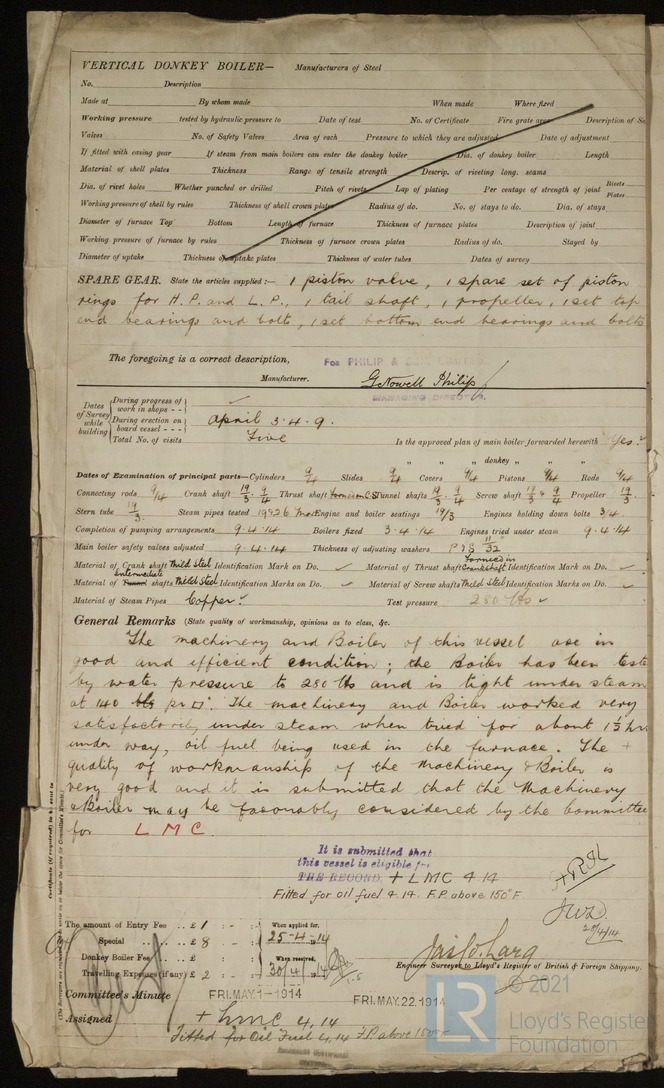 VERTICAL DONKEY BOILER— Manufacturers of Steel
No. Description
Made at By whom made When made Where fixed
Working pressure tested by hydraulic pressure to Date of test No. of Certificate Fire grate area Description of
Valves No. of Safety Valves Area of each Pressure to which they are adjusted Date of adjustment
If fitted with easing gear If steam from main boilers can enter the donkey boiler Dia. of donkey boiler Length
Material of shell plates Thickness Range of tensile strength Descrip. of riveting long. seams
Dia. of rivet holes Whether punched or drilled Pitch of rivets Lap of plating Per centage of strength of joint Rivets Plates
Working pressure of shell by rules Thickness of shell crown plates Radius of do. No. of stays to do. Dia. of stays
Diameter of furnace Top Bottom Length of furnace Thickness of furnace plates Description of joint
Working pressure of furnace by rules Thickness of furnace crown plates Radius of do. Stayed by
Diameter of uptake Thickness of uptake plates Thickness of water tubes Dates of survey
SPARE GEAR. State the articles supplied:— 1 piston valve, 1 spare set of piston
rings for H.P. and L.P., 1 tail shaft, 1 propeller, 1 set top
end bearings and bolts, 1 set bottom end bearings and bolts
The foregoing is a correct description,
For PHILIP &
Manufacturer. G Nowell Philip
MANAGING DIRECTOR.
Dates of Survey while building
During progress of work in shops - -
During erection on board vessel - - - April 3.4.9.
Total No. of visits Five Is the approved plan of main boiler forwarded herewith Yes.
" " " donkey " " "
Dates of Examination of principal parts—Cylinders 9/4 Slides 9/4 Covers 9/4 Pistons 9/4 Rods 9/4
Connecting rods 9/4 Crank shaft 19/3. 9/4 Thrust shaft Tunnel shafts 19/3. 9/4 Screw shaft 19/3 9/4 Propeller 19/3.
Stern tube 19/3. Steam pipes tested 19 & 26 Mar Engine and boiler seatings 19/3 Engines holding down bolts 3.4
Completion of pumping arrangements 9.4.14 Boilers fixed 3.4.14 Engines tried under steam 9.4.14
Main boiler safety valves adjusted 9.4.14 Thickness of adjusting washers P & S 11/32
Material of Crank shaft Mild Steel Identification Mark on Do. Material of Thrust shaft formed in Crankshaft Identification Mark on Do.
Material of Tunnel Intermediate shafts Mild Steel Identification Marks on Do. Material of Screw shafts Mild Steel Identification Marks on Do.
Material of Steam Pipes Copper. Test pressure 280 lbs
General Remarks (State quality of workmanship, opinions as to class, &c.
The machinery and Boiler of this vessel are in
good and efficient condition; the Boiler has been teste
by water pressure to 280 lbs and is tight under steam
at 140 lbs pr □". The machinery and Boiler worked very
satisfactorily under steam when tried for about 1½ hr
under way, oil fuel being used in the furnace. The
quality of workmanship of the Machinery & Boiler is
very good and it is submitted that the Machinery
& Boiler may be favorably considered by the Committee
for L M C.
It is submitted that
this vessel is eligible for
THE RECORD. + LMC 4.14
Fitted for oil fuel 4.14. F.P. above 150°F.
28/4/14
The amount of Entry Fee .. £ 1 : - : - When applied for,
Special .. .. £ 8 : - : 25-4-1914
Donkey Boiler Fee .. £ : : When received,
Travelling Expenses (if any) £ 2 : - : 30/4/14
Jas. W. Larg
Engineer Surveyor to Lloyd's Register of British & Foreign Shipping.
Committee's Minute FRI. MAY. 1-1914 FRI. MAY. 22. 1914
Assigned + LMC 4.14
Fitted for Oil Fuel 4.14 F.P above 150°F
© 2021
LR Lloyd's Register
Foundation